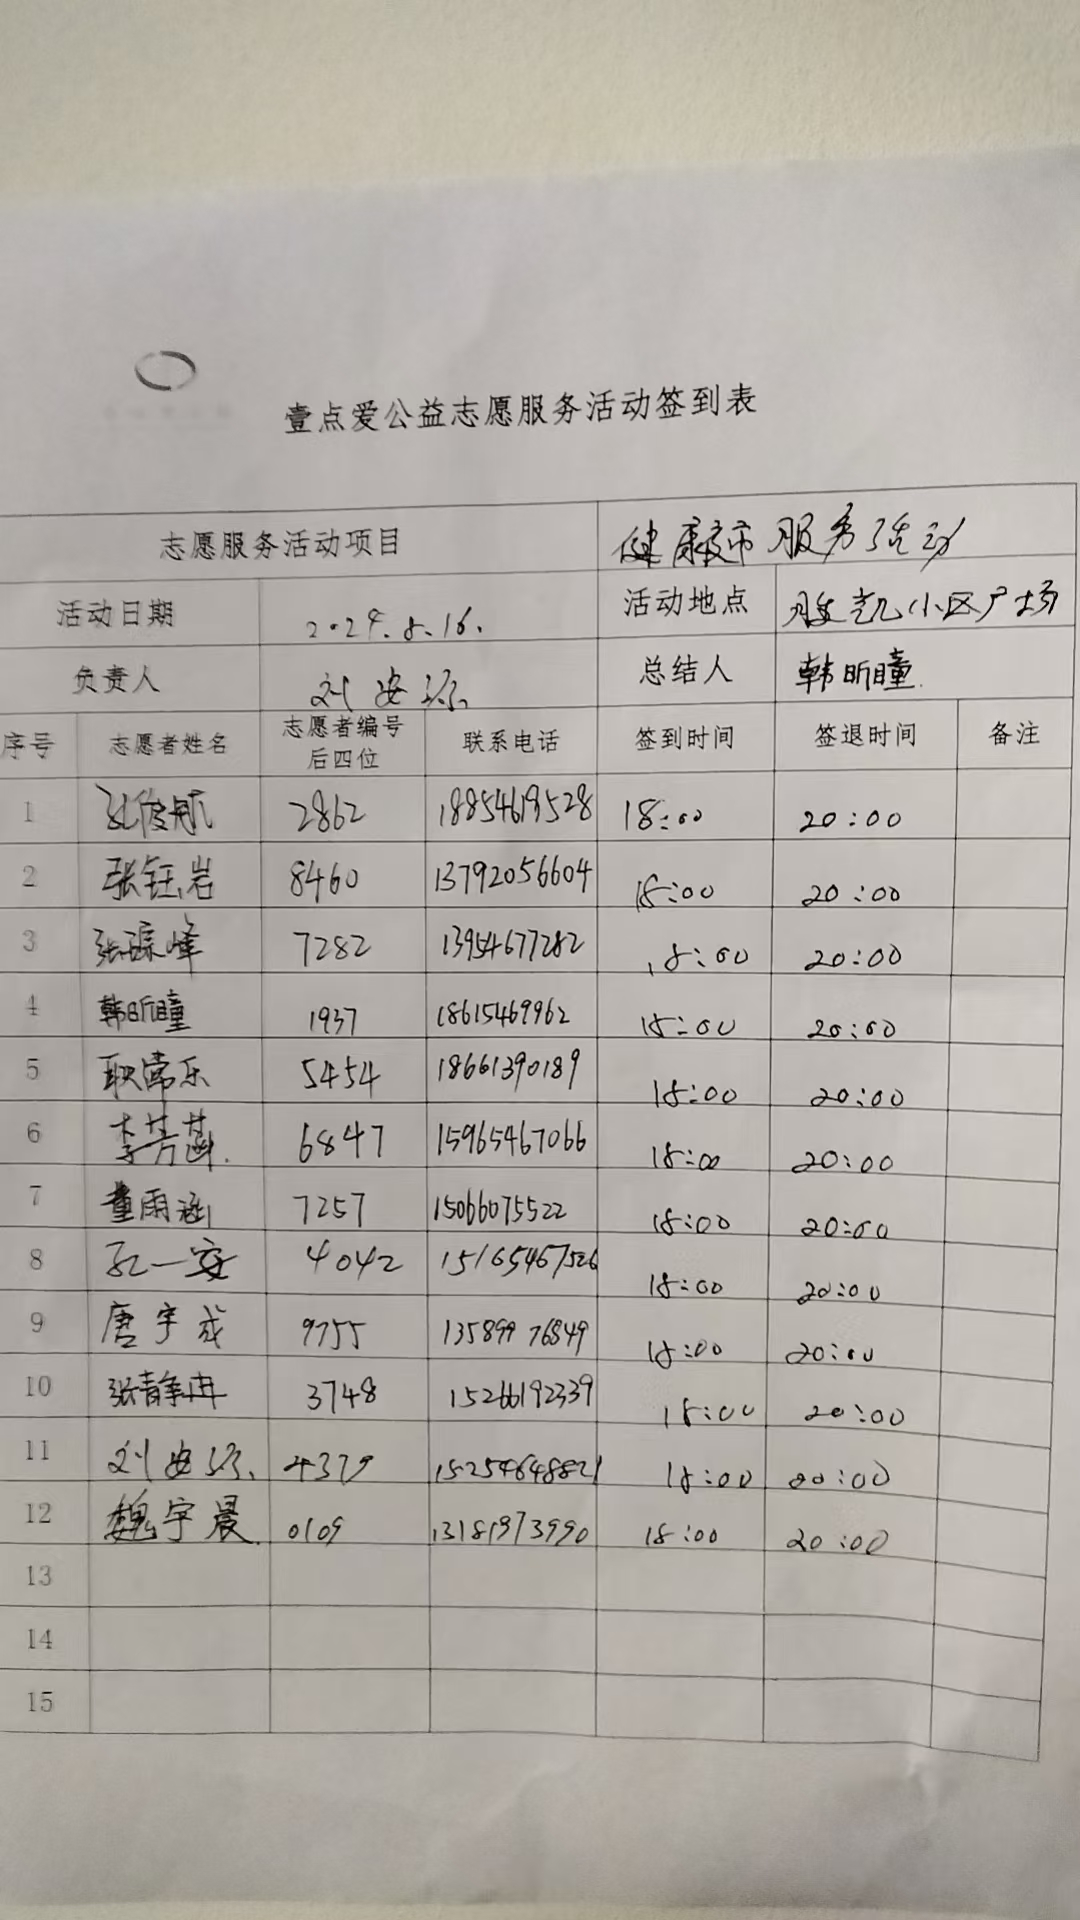 壹点爱公益志愿服务活动签到表
志愿服务活动项目 健康夜市服务活动
活动日期 2024.8.16. 活动地点 胜凯小区广场
负责人 刘安 总结人 韩昕瞳
序号 志愿者姓名 志愿者编号后四位 联系电话 签到时间 签退时间 备注
1 2862 18854619528 18:00 20:00
2 张钰岩 8460 13792056604 18:00 20:00
3 张琮峰 7282 13954677282 18:00 20:00
4 韩昕瞳 1937 18615469962 18:00 20:00
5 耿常乐 5454 18661390189 18:00 20:00
6 李芳菡. 6847 15965467066 18:00 20:00
7 董雨涵 7257 15066075522 18:00 20:00
8 孔一安 4042 15165467526 18:00 20:00
9 唐宇成 9755 13589976849 18:00 20:00
10 张静冉 3748 15266192339 18:00 20:00
11 刘安 4379 15254648821 18:00 20:00
12 魏宇晨 0109 13181973990 18:00 20:00
13
14
15